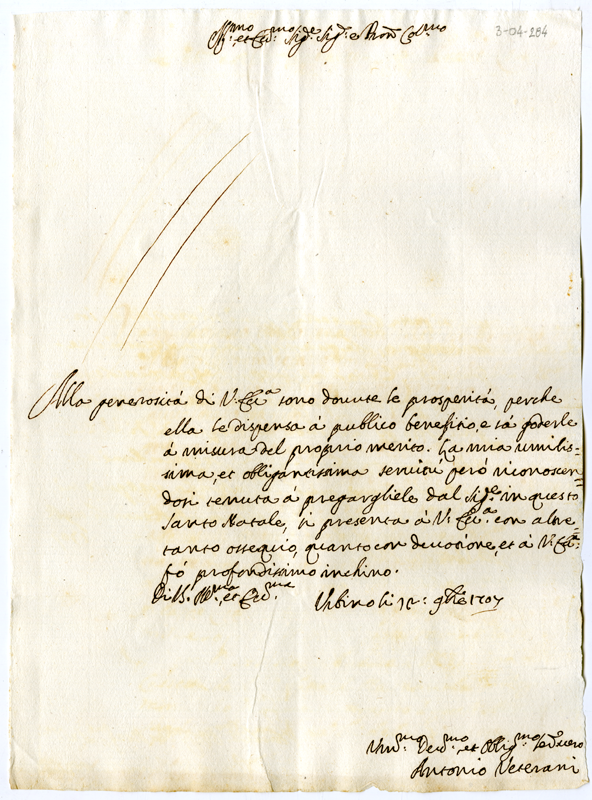 Ill.mo et Ecc.mo Sig.e Sig.e e Pron Col.mo
3-04-284
Alla generosità di V. Ecc.a sono douute le prosperità, perche
ella le dispensa à publico benefitio, e sà goderle
à misura del proprio merito. La mia umilis=
sima, et obligantissima seruitù però riconoscen=
dosi tenuta à pregargliele dal Sig.e in questo
Santo Natale, si presenta à V. Ecc.a con altre=
tanto ossequio, quanto con deuozione, et à V. Ecc.a
fò profondissimo inchino.
Di V. Ill.ma et Ecc.ma Urbino li 9bre 1707
Um.mo Deu.mo et Oblig.mo Ser. uero
Antonio Veterani